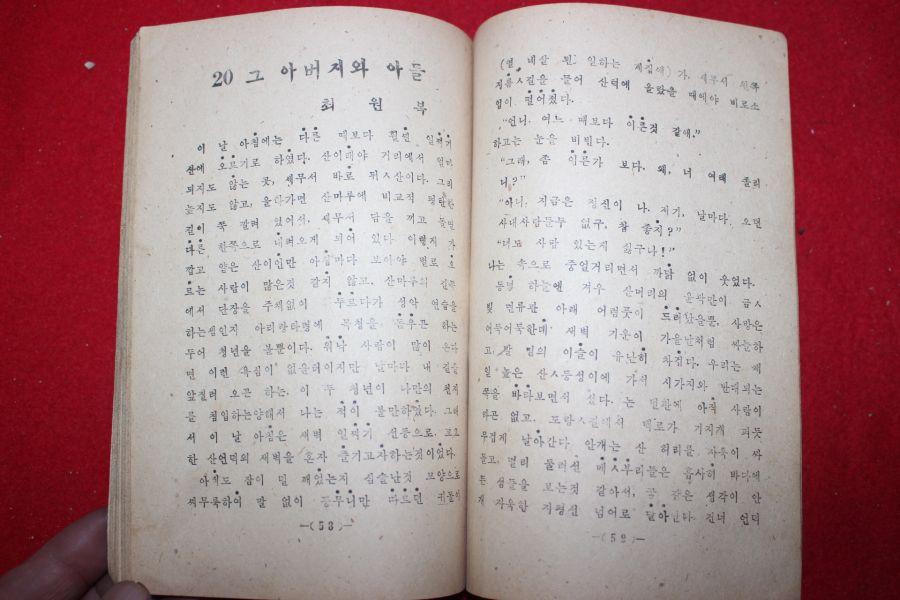 20 그 아버지와 아들
최 원 복
이 날 아침에는 다른 때보다 훨씬 일찍기
산에 오르기로 하였다. 산이래야 거리에서 얼마
되지도 않는 곳, 세무서 바로 뒤ㅅ산이다. 그리
높지도 않고, 올라가면 산마루에 비교적 평탄한
길이 쭉 깔려 있어서, 세무서 담을 끼고 돌면
다른 한쪽으로 내려오게 되어 있다 이렇게 가
깝고 얕은 산이언만 아침마다 보아야 별로 오
르는 사람이 많은것 같지 않고, 산마루의 길목
에서 단장을 주체없이 두르다가 성악 연습을
하는셈인지 아리랑타령에 목청을 돋우곤 하는
두어 청년을 볼뿐이다. 워낙 사람이 많이 온다
면 이런 욕심이 없을러이지만 날마다 내 길을
앞질러 오곤 하는, 이 두 청년이 나만의 천지
를 침입하는양해서 나는 적이 불만하였다. 그래
서 이 날 아침은 새벽 일찌기 선등으로 고요
한 산언덕의 새벽을 혼자 즐기고자하는것이었다.
아직도 잠이 덜 깨었는지 심술난것 모양으로
씨무룩하여 말 없이 궁무니만 따르던 귀돌이
—(58)—
(열 네살 된 일하는 계집애)가, 세무서 왼쪽
지름ㅅ길을 들어 산턱에 올랐을 때에야 비로소
입이 떨어졌다.
“언니. 여느 때보다 이른것 같애.”
하고는 눈을 비빈다.
“그래, 좀 이른가 보다. 왜, 너 여태 졸리
니?”
“아니. 지금은 정신이 나. 저기, 날마다. 오던
사내사람들두 없구, 참 좋지?”
“너도 사람 있는게 싫구나!”
나는 속으로 중얼거리면서 까닭 없이 웃었다.
동녘 하늘엔 겨우 산머리의 윤곽만이 금ㅅ
빛 면류관 아래 어렴풋이 드러났을뿐, 사방은
어둑어둑한데 새벽 기운이 가을날처럼 싸늘하
고, 발 밑의 이슬이 유난히 차겁다. 우리는 제
일 높은 산ㅅ등성이에 가서 시가지와 반대되는
쪽을 바라보면서 섰다. 논 벌판에 아직 사람이
라곤 없고, 도랑ㅅ길에서 백로가 가지게 파듯
무겁게 날아간다. 안개는 산 허리를 자욱이 싸
돌고, 멀리 둘러선 메ㅅ부리들은 흡사히 바다에
뜬 섬들을 보는것 같아서, 공 같은 생각이 안
개 자욱한 지평선 넘어로 달아난다. 건너 언덕
—(59)—